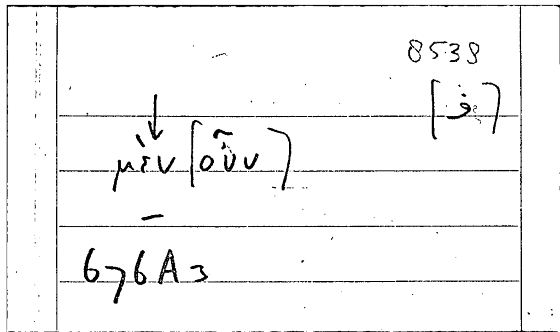 8538
[ف]
μὲν [οὖν]
–
676A3